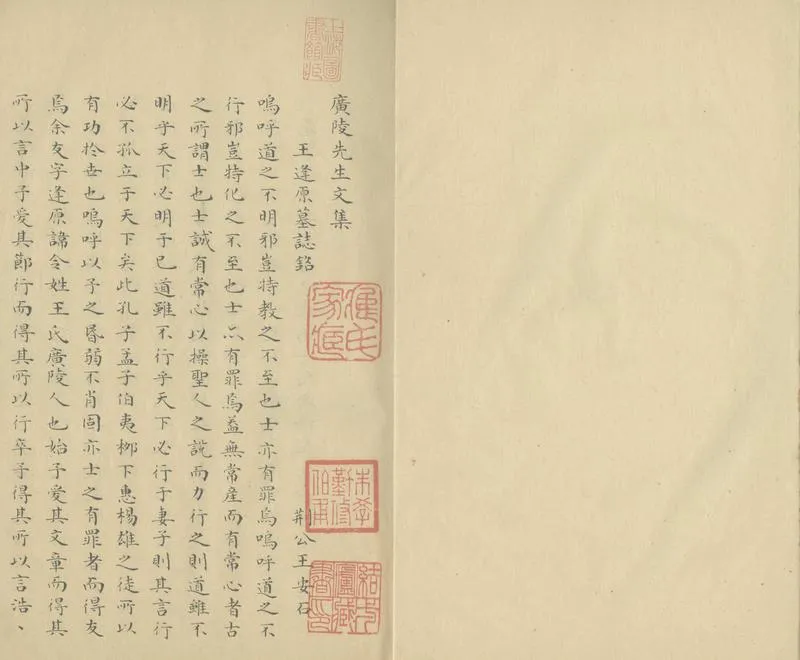 廣陵先生文集
王逢原墓誌銘 荊公王安石
嗚呼道之不明邪豈特教之不至也士亦有罪焉嗚呼道之不
行邪豈特化之不至也士亦有罪焉蓋無常產而有常心者古
之所謂士也士誠有常心以操聖人之說而力行之則道雖不
明乎天下必明于已道雖不行乎天下必行于妻子則其言行
必不孤立于天下矣此孔子孟子伯夷栁下惠楊雄之徒所以
有功於世也嗚呼以予之昏弱不肖固亦士之有罪者而得友
焉余友字逢原諱令姓王氏廣陵人也始予愛其文章而得其
所以言中予愛其節行而得其所以行卒予得其所以言浩、
朱學勤修伯甫
結一廬藏書印